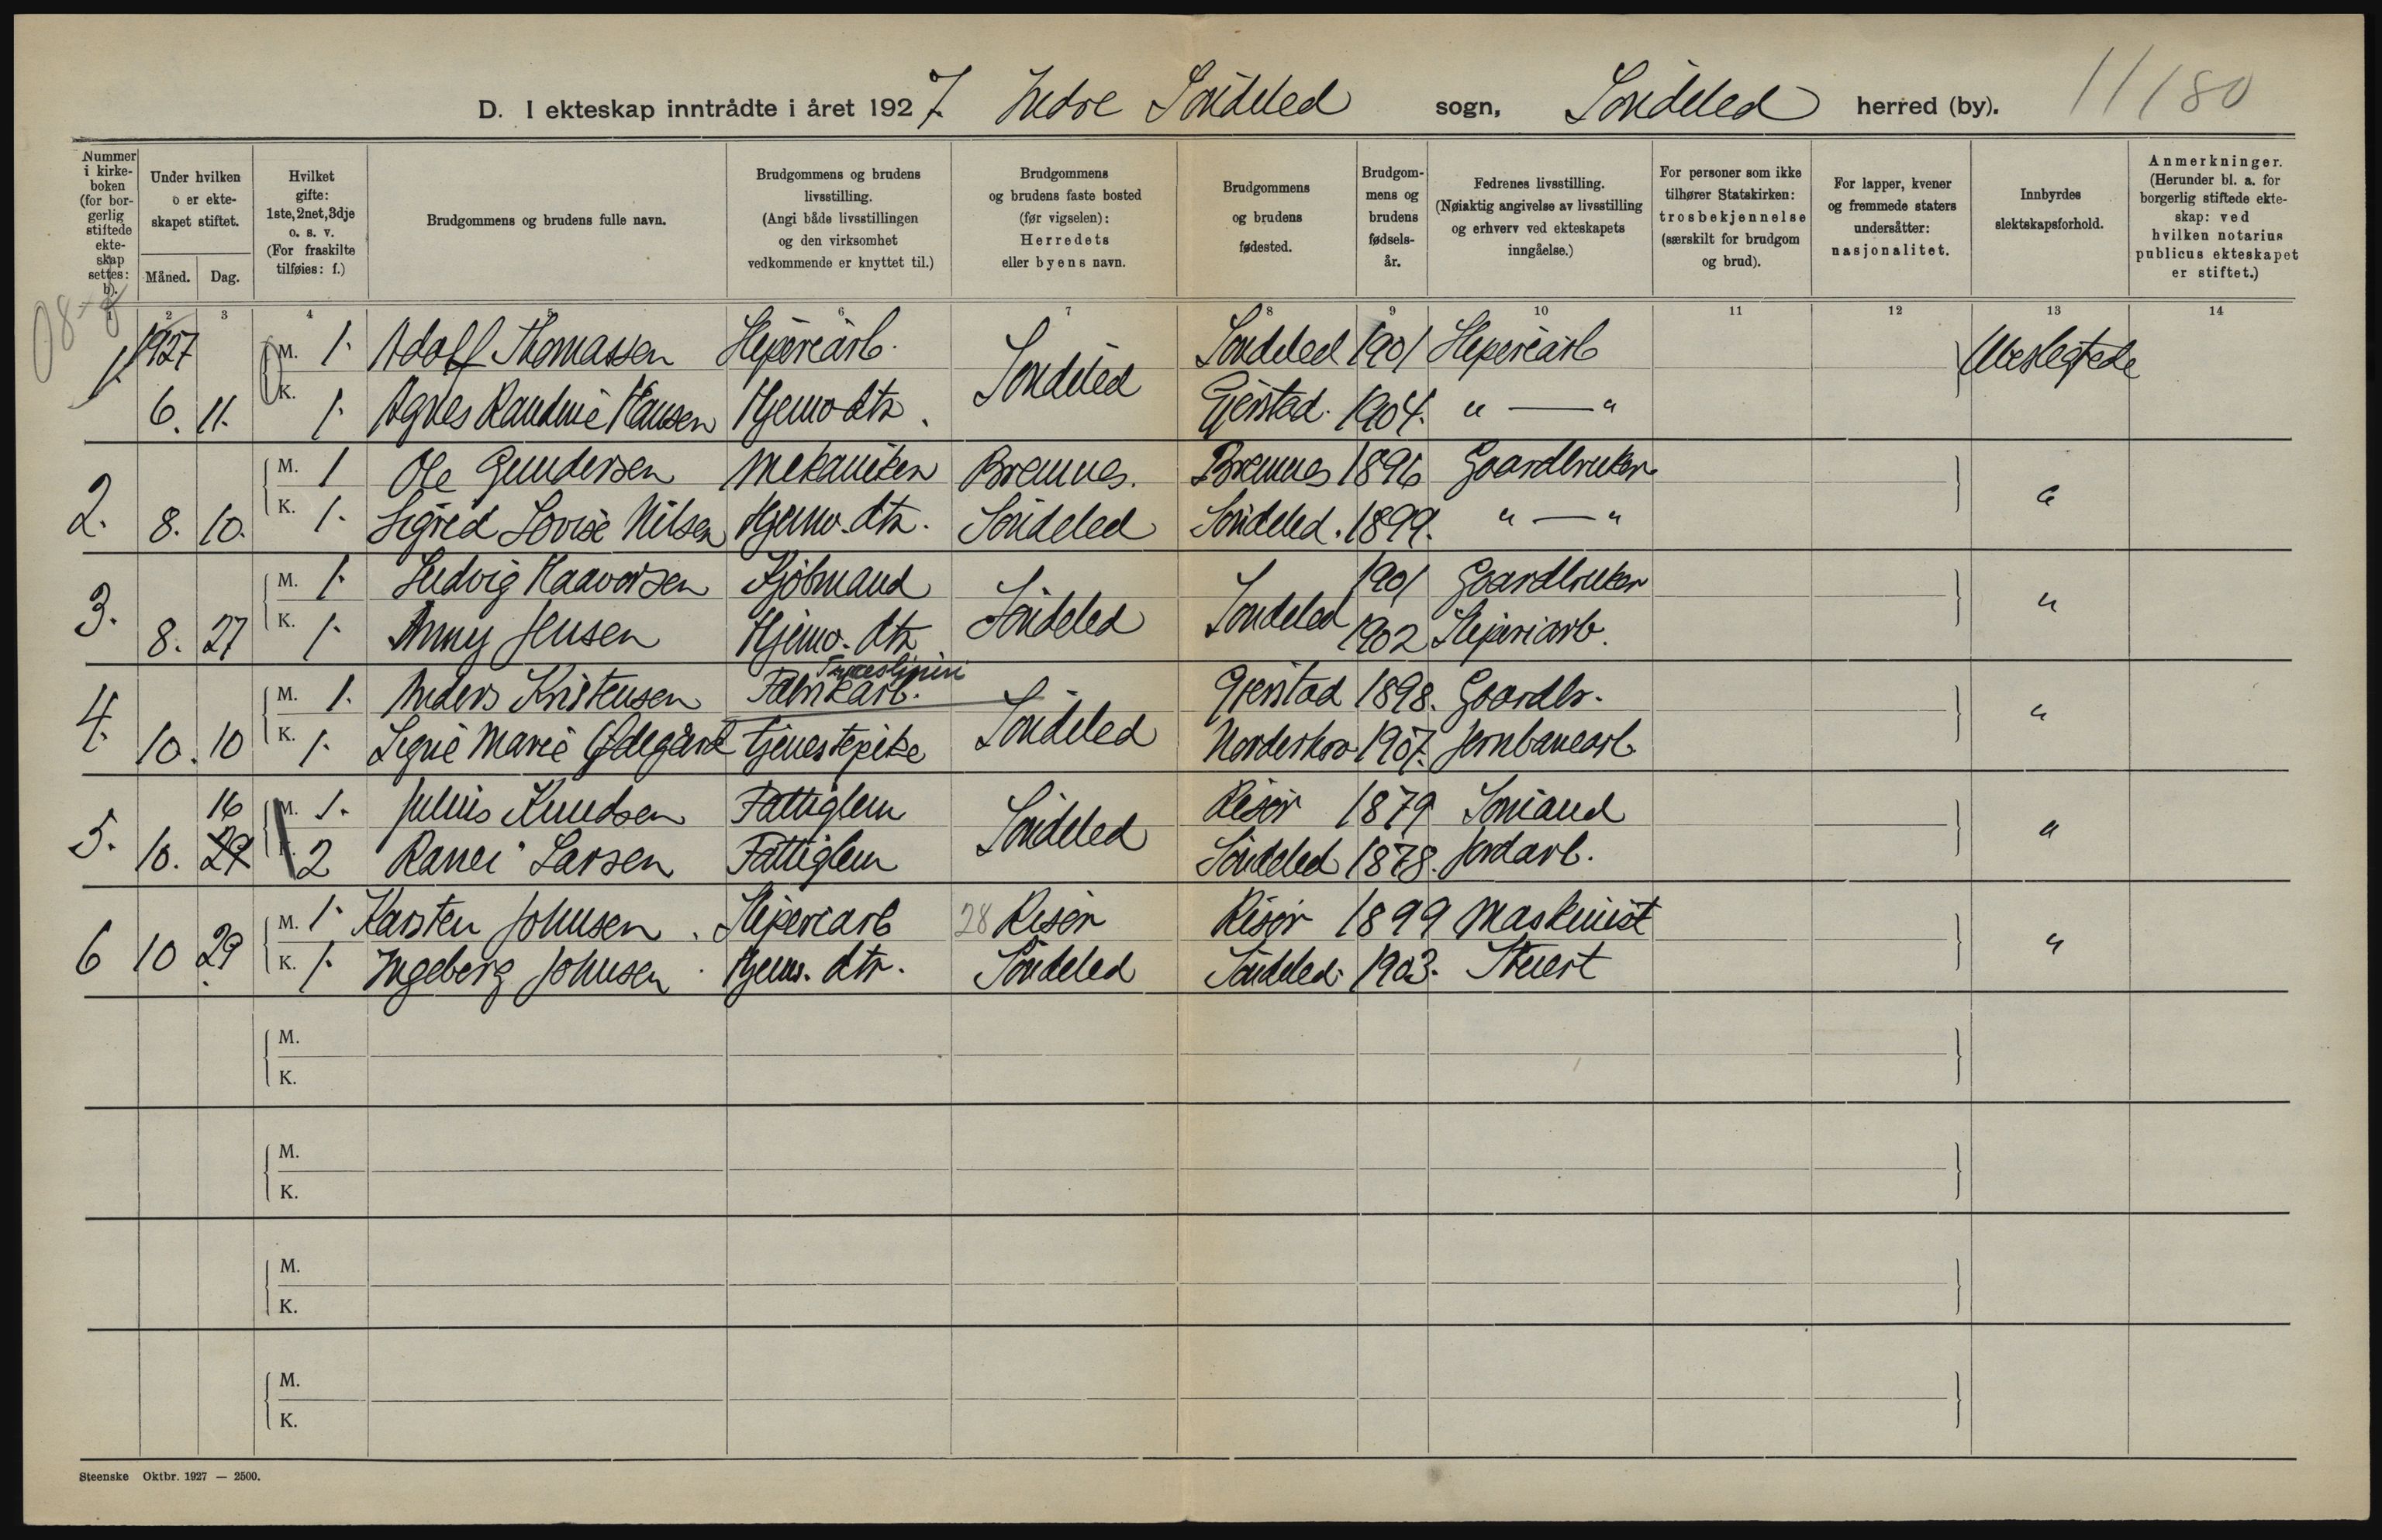 D. I ekteskap inntrådte i året 1927. Indre Söndeled sogn, Söndeled herred (by). 11/80
Nummer i kirkeboken (for borgerlig stiftede ekteskap settes: b). Under hvilken o er ekteskapet stiftet. Måned. Dag. Hvilket gifte: 1ste, 2net, 3dje o. s. v. (For fraskilte tilføies: f.) Brudgommens og brudens fulle navn. Brudgommens og brudens livsstilling. (Angi både livsstillingen og den virksomhet vedkommende er knyttet til.) Brudgommens og brudens faste bosted (før vigselen): Herredets eller byens navn. Brudgommens og brudens fødested. Brudgommens og brudens fødselsår. Fedrenes livsstilling. (Nøiaktig angivelse av livsstilling og erhverv ved ekteskapets inngåelse.) For personer som ikke tilhører Statskirken: trosbekjennelse (særskilt for brudgom og brud). For lapper, kvener og fremmede staters undersåtter: nasjonalitet. Innbyrdes slektskapsforhold. Anmerkninger. (Herunder bl. a. for borgerlig stiftede ekteskap: ved hvilken notarius publicus ekteskapet er stiftet.)
1 2 3 4 5 6 7 8 9 10 11 12 13 14
1. 1927 M. 1. Adolf Thomassen Sliperiarb. Söndeled Söndeled 1901 Sliperiarb Ubeslegtede
6. 11. K. 1. Agnes Randine Hansen Hjemv. dtr. Gjerstad. 1904. " — "
2. M. 1 Ole Gundersen Mekaniker Bremnes. Bremnes 1896 Gaardbruker "
8. 10. K. 1. Sigrid Lovise Nilsen Hjemv. dtr. Söndeled Söndeled. 1899. " — "
3. M. 1. Ludvig Haavorsen Kjöbmand Söndeled Söndeled 1901 Gaardbruker "
8. 27 K. 1. Anny Jensen Hjemv. dtr 1902 Sliperiarb.
Træsliperi
4. M. 1. Anders Kristensen Fabrikarb. Söndeled Gjerstad 1898. Gaardbr. "
10. 10 K. 1. Signe Marie Ødegård Tjenestepike Norderhov 1907. Jernbanearb.
5. 16 M. 1. Julius Knudsen Fattiglem Söndeled Risör 1879 Sömand "
10. 29 K. 2 Ranei Larsen Fattiglem Söndeled 1878. Jordarb.
6 M. 1. Karsten Johnsen. Sliperiarb 28 Risör Risör 1899 Maskinist "
10 29. K. 1. Ingeborg Johnsen. Hjemv. dtr. Söndeled Söndeled. 1903. Stuert
M.
K.
M.
K.
M.
K.
M.
K.
Steenske Oktbr. 1927 — 2500.